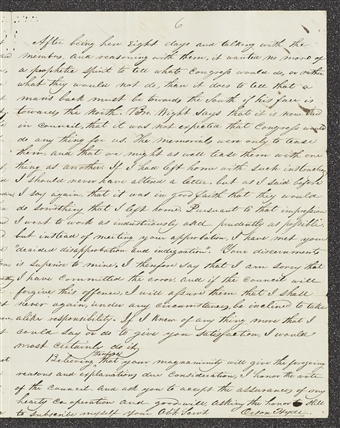 6
After being here eight days and talking with the
members, and reasoning with them, it wanted no more of
a prophetic spirit to tell what Congress would do, or rather
what they would not do, than it does to tell that a
man's back must be towards the South if his face is
towards the North. Bro. Wight says that it is now
in council, that it was not expected that Congress would
do any thing for us. The memorials were only to tease
them and that we might as well tease them with one
thing as another. If I had left home with such instructions
I should never have altered a letter. but as I said before
I say again that it was in good faith that they would
do something that I left home. Pursuant to that impression
I went to work as industriously and prudently as possible
but instead of meeting your approbation, I have met your
decided disapprobation and indignation. Your discernment
is superior to mine. I therefore say that I am sorry that
I have committed the error and if the council will
forgive this offence, I will assure them that I shall
never again under any circumstances be inclined to take
alike responsibility. If I knew of any thing more that I
could say or do to give you satisfaction, I would
most certainly do it,
Believing therefore that your magnanimity will give the foregoing
reasons and explanations due consideration, I honor the vote
of the Council and ask you to accept the assurances of my
hearty co operation and good will asking the honor still
to subscribe myself your Obt. Servt Orson Hyde